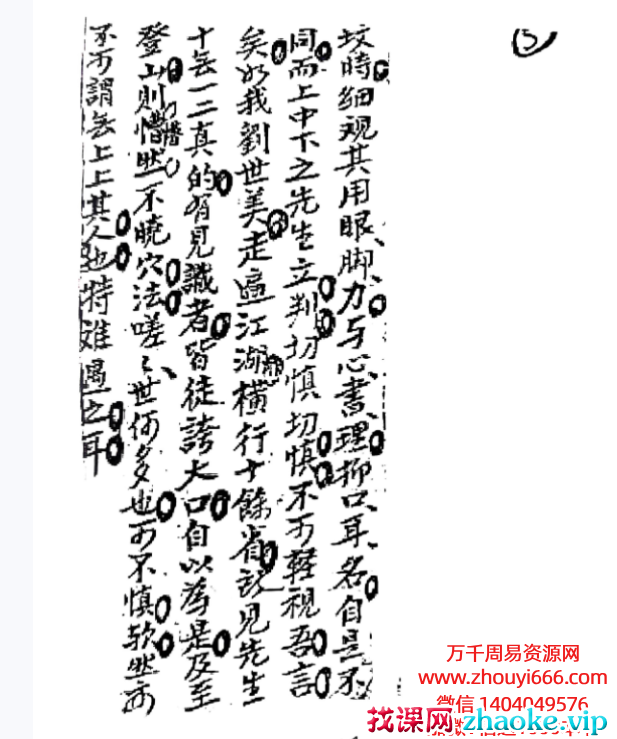 ⑤
坟時細观其用眼、脚、力与心書、理抑口耳、名自是不
同而上中下之先生立判切慎切慎不可輕視吾言
矣如我劉世美走遍江湖横行十餘省所見先生
十無一二真的有見識者皆徒誇大口自以為是及至
登山則懵懵然不曉穴法嗟々、世何多也可不慎欤然而
不可謂無上上其人也特难遇之耳
万千周易资源网
www.zhouyi666.com
微信 1404049576
找课网 zhaoke.vip